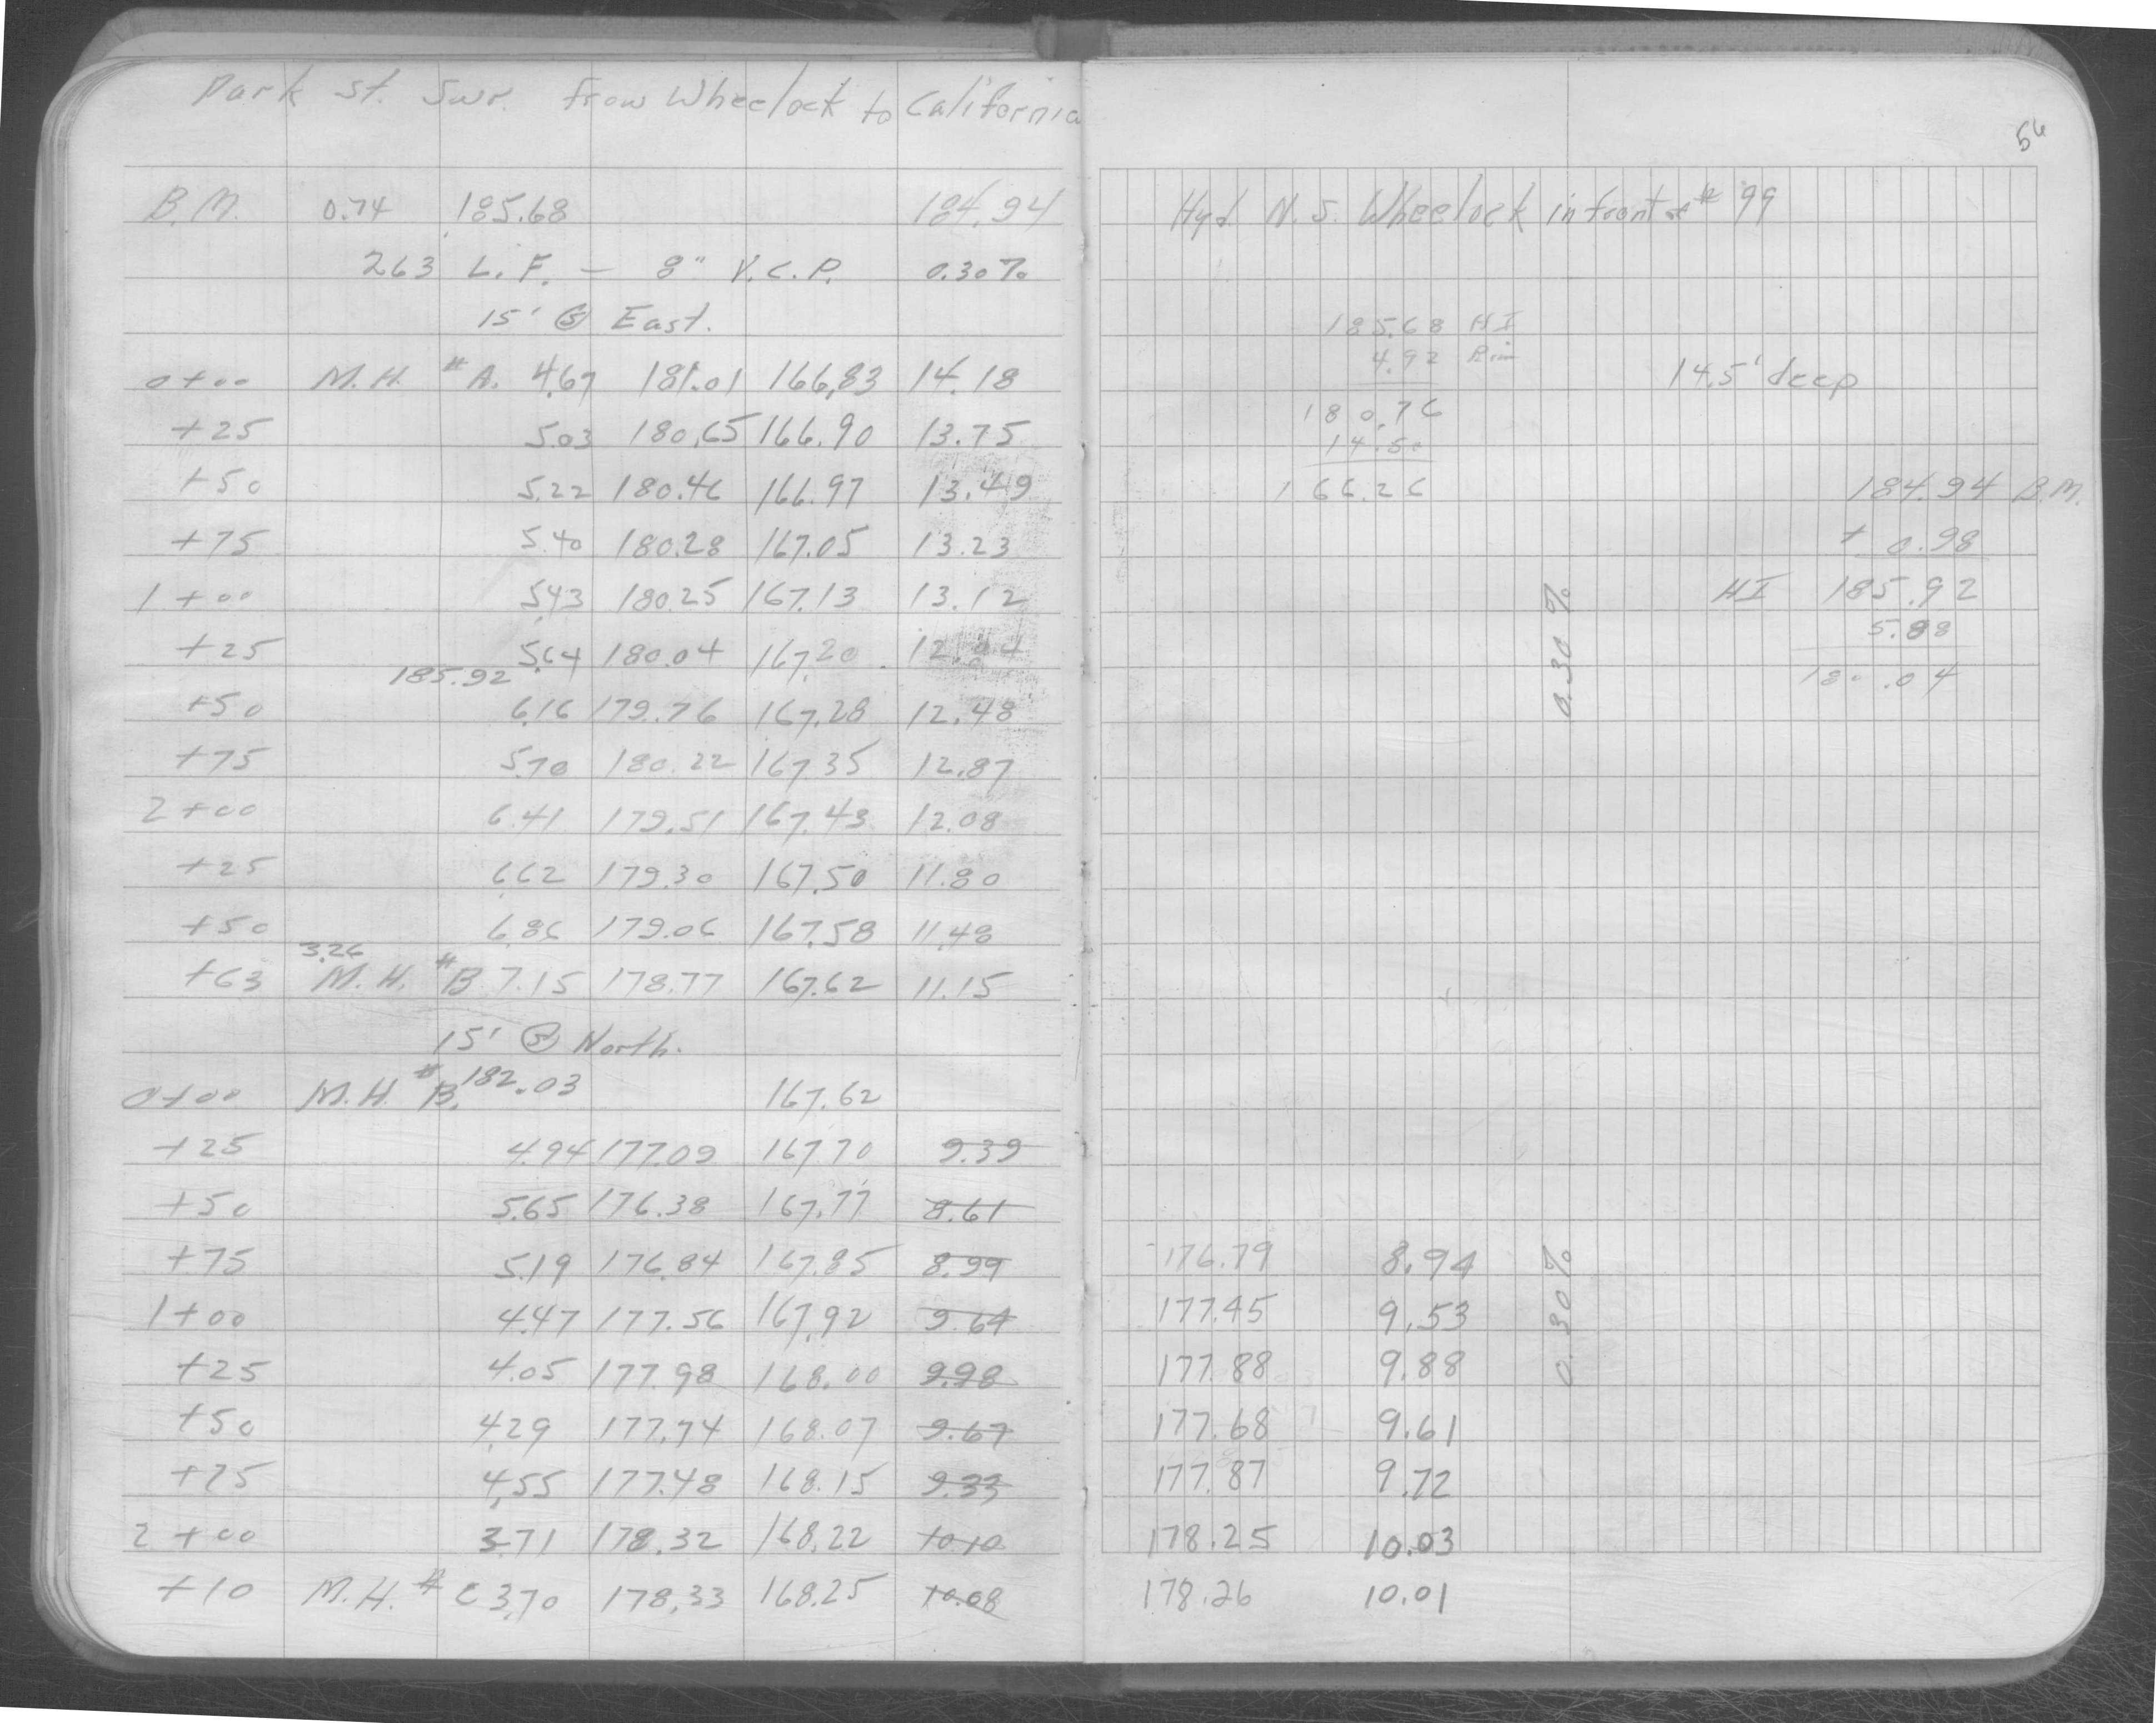 Park St. Swr. From Wheelock to California
B.M. 0.74 185.68 184.94
263 L.F. — 8" V.C.P. 0.30%
15' Ⓢ East.
0+00 M.H. #A. 4.67 181.01 166.83 14.18
+25 5.03 180.65 166.90 13.75
+50 5.22 180.46 166.97 13.49
+75 5.40 180.28 167.05 13.23
1+00 5.43 180.25 167.13 13.12
+25 5.64 180.04 167.20
185.92
+50 6.16 179.76 167.28 12.48
+75 5.70 180.22 167.35 12.87
2+00 6.41 179.51 167.43 12.08
+25 6.62 179.30 167.50 11.80
+50 6.86 179.06 167.58 11.48
3.26
+63 M.H. #B 7.15 178.77 167.62 11.15
15' Ⓢ North.
0+00 M.H. #B. 182.03 167.62
+25 4.94 177.09 167.70 9.39
+50 5.65 176.38 167.77 8.61
+75 5.19 176.84 167.85 8.99
1+00 4.47 177.56 167.92 9.64
+25 4.05 177.98 168.00 9.98
+50 4.29 177.74 168.07 9.67
+75 4.55 177.48 168.15 9.33
2+00 3.71 178.32 168.22 10.10
+10 M.H. #C 3.70 178.33 168.25 10.08
56
Hyd N.S. Wheelock in front of #99
185.68 HI
4.92 Rim
180.76
14.50
166.26
14.5' deep
184.94 B.M.
+ 0.98
HI 185.92
5.88
180.04
0.30%
176.79 8.94
177.45 9.53
177.88 9.88
177.68 9.61
177.87 9.72
178.25 10.03
178.26 10.01
0.30%